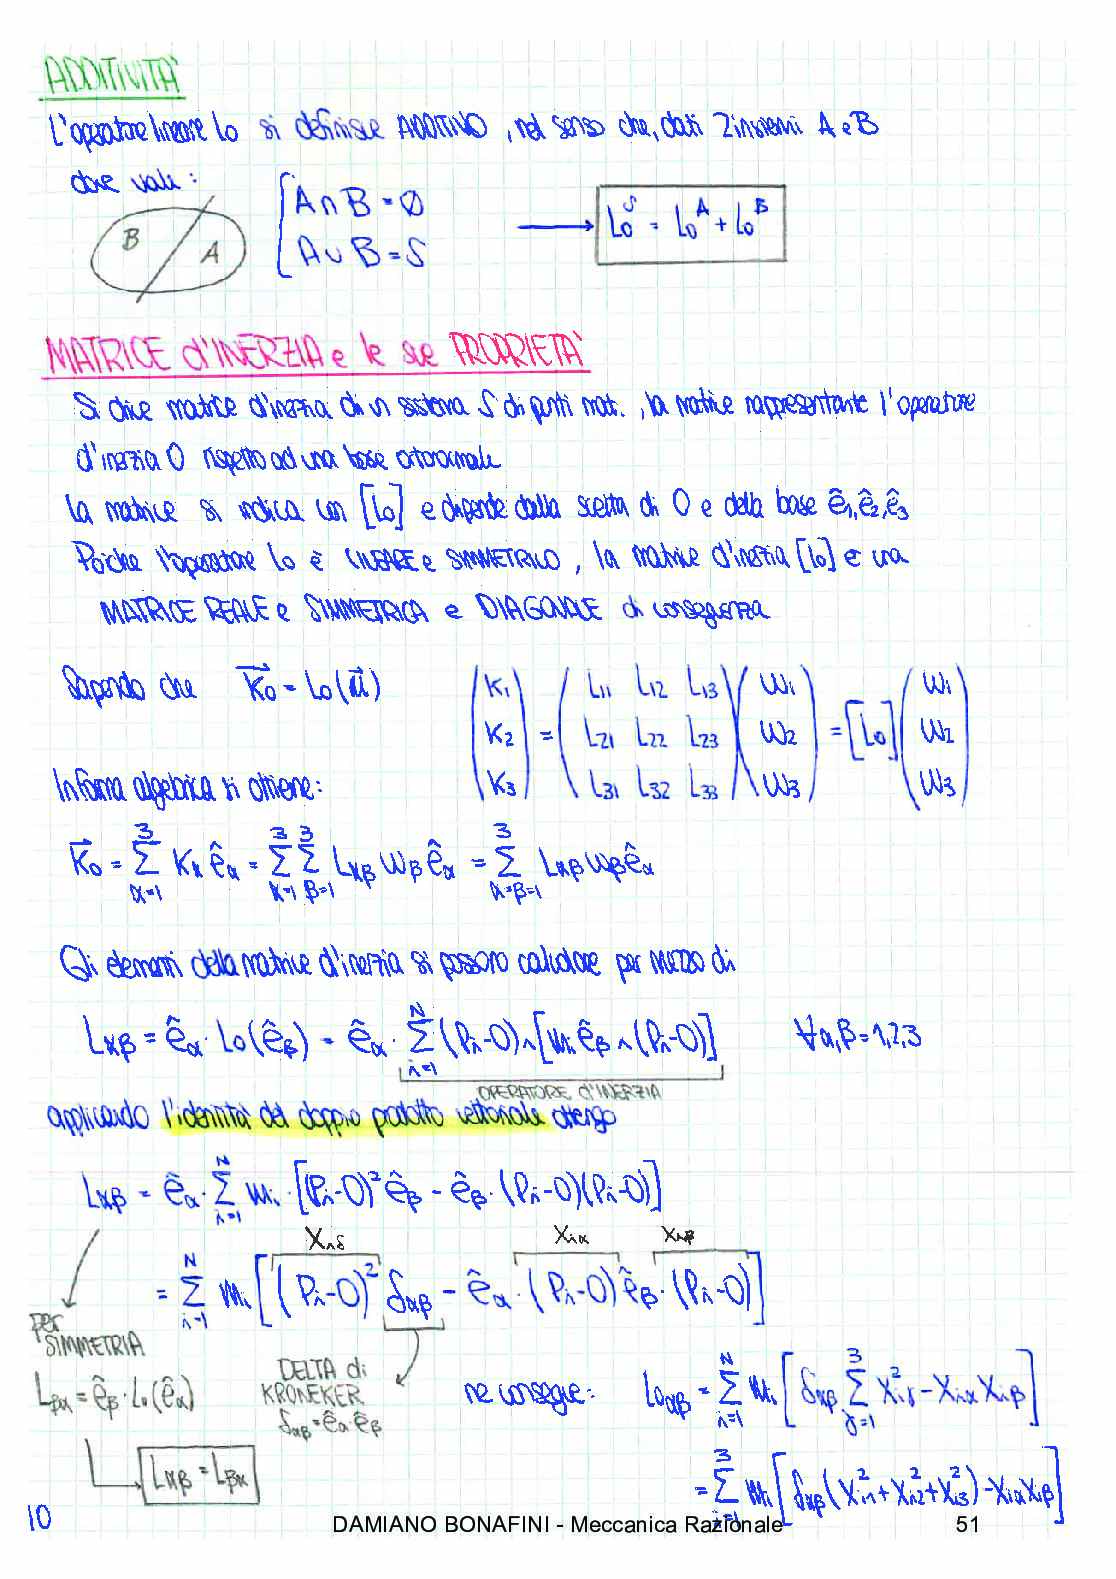 ADDITIVITA'
L'operatore lineare Lo si definisce ADDITIVO, nel senso che, dati 2 insiemi A e B
dove vale:
B A
{ A ∩ B = ∅
A ∪ B = S
→ Lo^S = Lo^A + Lo^B
MATRICE d'INERZIA e le sue PROPRIETA'
Si dice matrice d'inerzia di un sistema S di punti mat., la matrice rappresentante l'operatore
d'inerzia O rispetto ad una base ortonormale
La matrice si indica con [Lo] e dipende dalla scelta di O e della base ê1, ê2, ê3
Poichè l'operatore Lo è LINEARE e SIMMETRICO, la matrice d'inerzia [Lo] è una
MATRICE REALE e SIMMETRICA e DIAGONALE di conseguenza
Sapendo che K⃗o = Lo(u⃗)
(K1 K2 K3) = (L11 L12 L13 L21 L22 L23 L31 L32 L33) (ω1 ω2 ω3) = [Lo] (ω1 ω2 ω3)
In forma algebrica si ottiene:
K⃗o = Σ_{α=1}^{3} Kα êα = Σ_{α=1}^{3} Σ_{β=1}^{3} Lαβ ωβ êα = Σ_{α=β=1}^{3} Lαβ ωβ êα
Gli elementi della matrice d'inerzia si possono calcolare per mezzo di
Lαβ = êα · Lo(êβ) = êα · Σ_{i=1}^{N} (Pi-O) ∧ [mi êβ ∧ (Pi-O)] ∀α,β=1,2,3
OPERATORE d'INERZIA
applicando l'identità del doppio prodotto vettoriale ottengo
Lαβ = êα · Σ_{i=1}^{N} mi · [(Pi-O)² êβ - êβ · (Pi-O)(Pi-O)]
Xiδ Xiα Xiβ
= Σ_{i=1}^{N} mi [(Pi-O)² δαβ - êα · (Pi-O) êβ · (Pi-O)]
per
SIMMETRIA
Lβα = êβ · Lo(êα)
Lαβ = Lβα
DELTA di
KRONEKER
δαβ = êα·êβ
ne consegue: Loαβ = Σ_{i=1}^{N} mi [δαβ Σ_{γ=1}^{3} X²iγ - Xiα Xiβ]
= Σ_{i=1}^{3} mi [δαβ (X²i1 + X²i2 + X²i3) - Xiα Xiβ]
10
DAMIANO BONAFINI - Meccanica Razionale
51